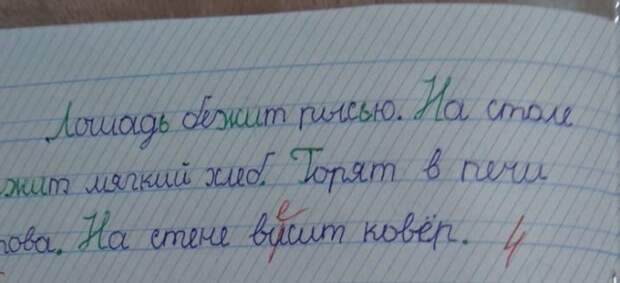 Лошадь бежит рысью. На столе
жит мягкий хлеб. Горят в печи
рова. На стене висит ковёр. 4
е